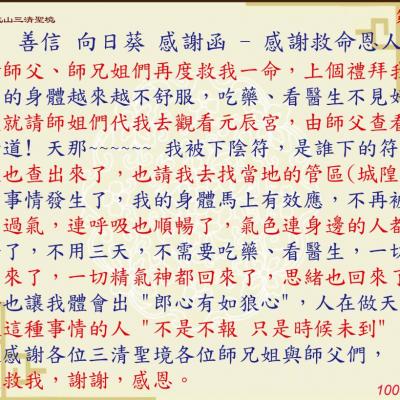 山三清聖境
善信 向日葵 感謝函 - 感謝救命恩人
師父、師兄姐們再度救我一命，上個禮拜我
的身體越來越不舒服，吃藥、看醫生不見好
就請師姐們代我去觀看元辰宮，由師父查看
道! 天那~~~~~~ 我被下陰符，是誰下的符
也查出來了，也請我去找當地的管區(城隍
事情發生了，我的身體馬上有效應，不再被
過氣，連呼吸也順暢了，氣色連身邊的人都
了，不用三天，不需要吃藥、看醫生，一切
來了，一切精氣神都回來了，思緒也回來了
也讓我體會出 "郎心有如狼心"，人在做天
這種事情的人 "不是不報 只是時候未到"
感謝各位三清聖境各位師兄姐與師父們，
救我，謝謝，感恩。
100